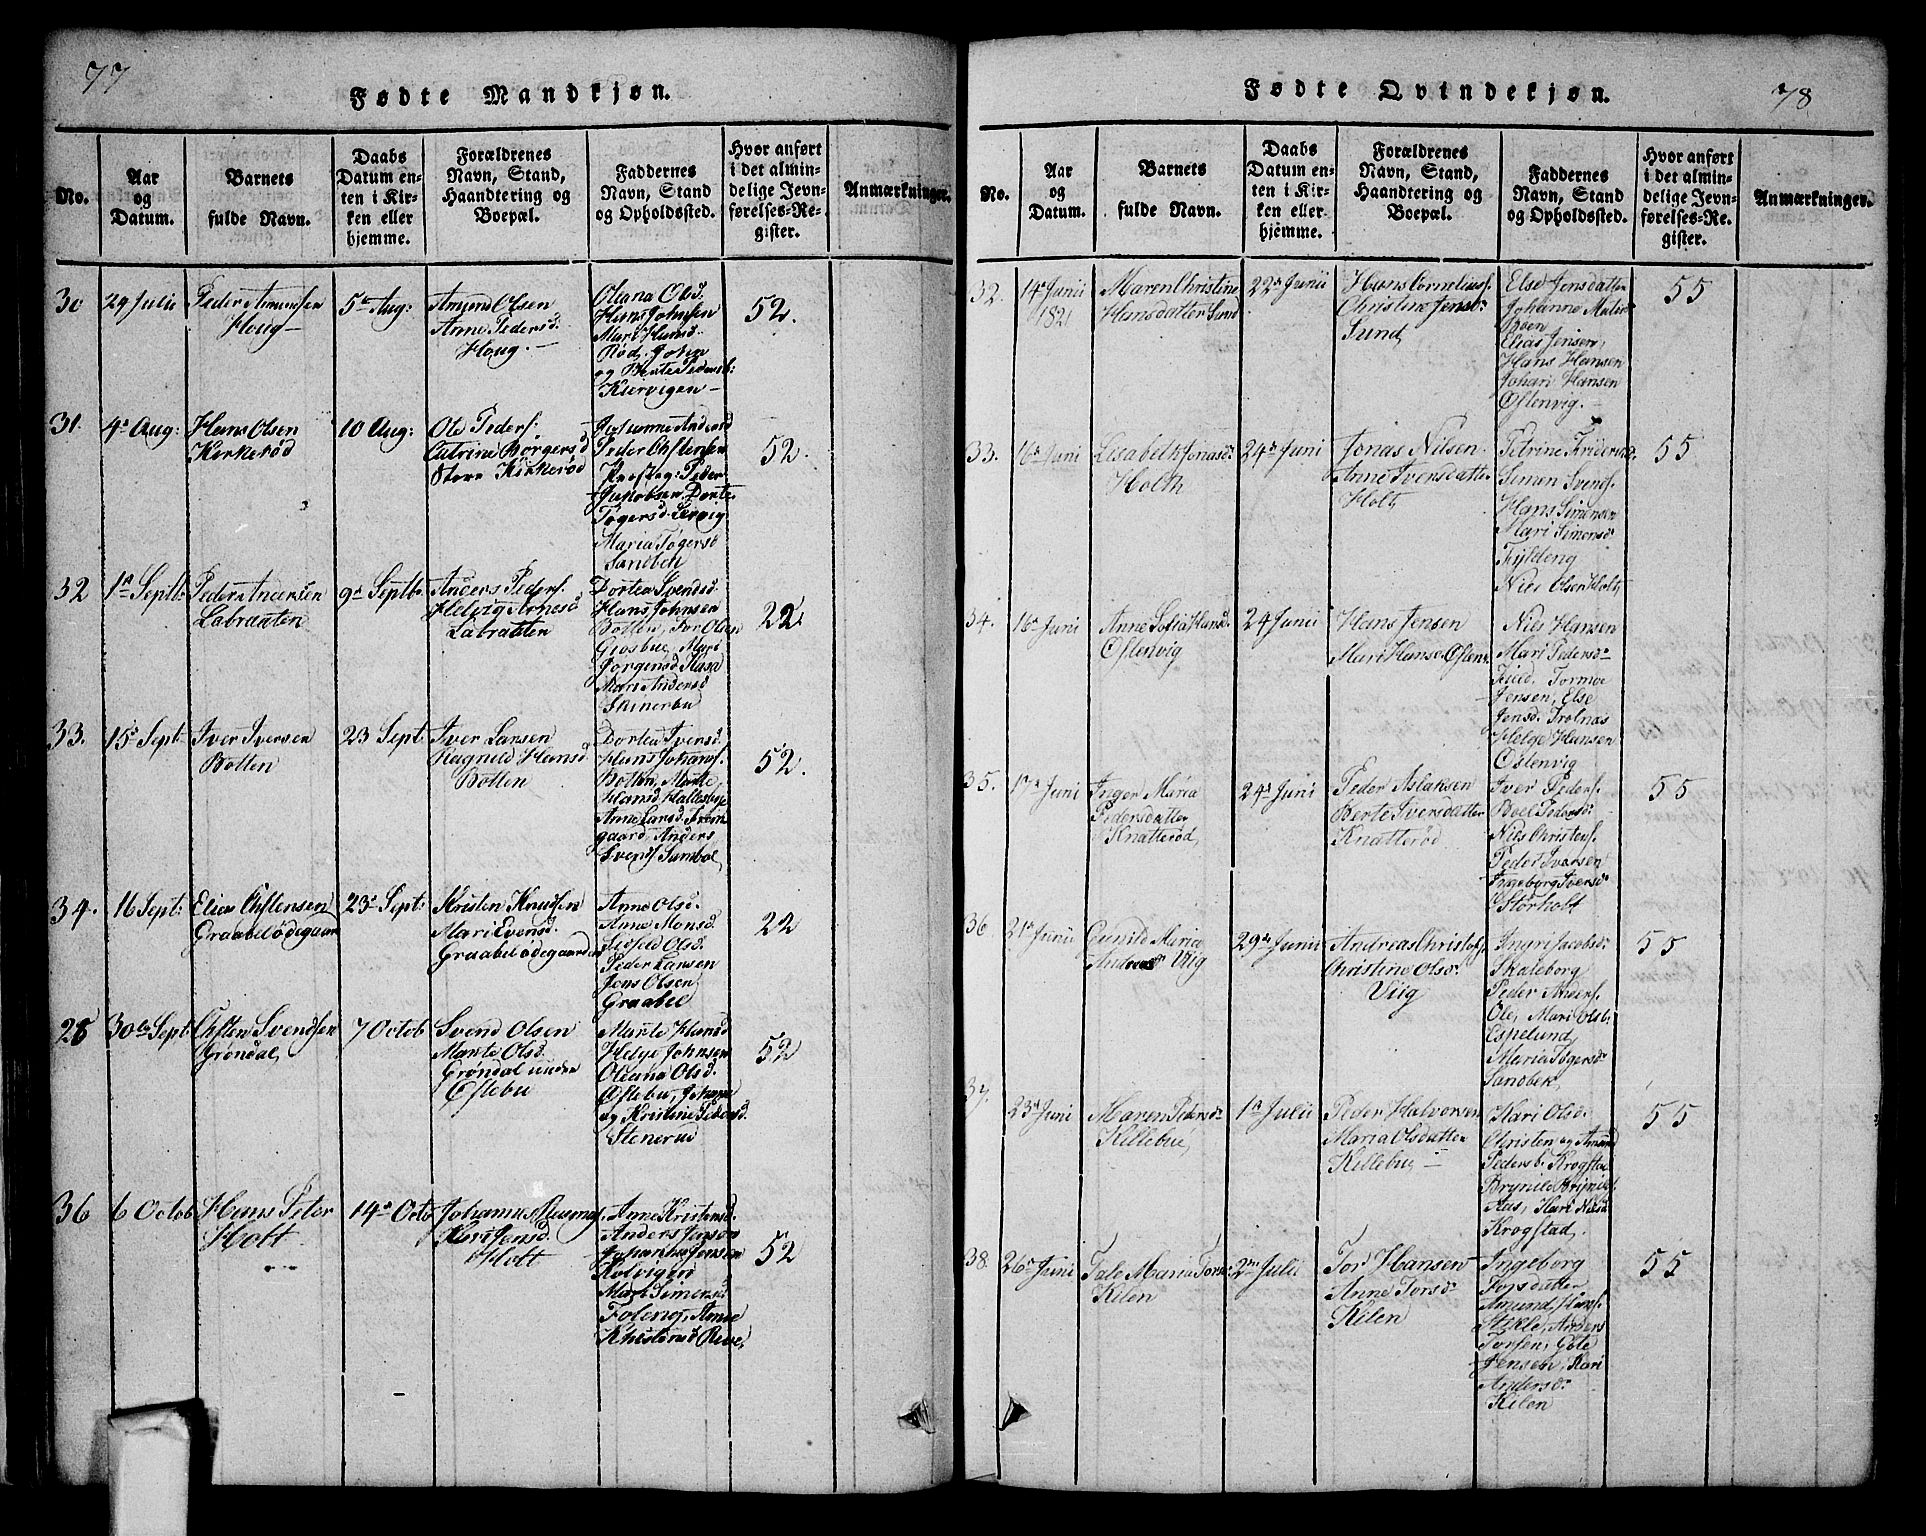 77
Fødte Mandkjøn.
No.
Aar
og
Datum.
Barnets
fulde Navn.
Daabs
Datum en-
ten i Kir-
ken eller
hjemme.
Forældrenes
Navn, Stand,
Haandtering og
Boepæl.
Faddernes
Navn, Stand
og Opholdssted.
Hvor anført
i det almin-
delige Jevn-
førelses-Re-
gister.
Anmærkninger.
30
24 Julii
Peder Amundsen
Houg
5te Aug:
Amund Olsen
Anne Pedersd.
Houg.
Oleana Olsd.
Hans Johnsen
Mari Hansd.
Rød. John
og Kiervigen
52.
31.
4de Aug:
Hans Olsen
Kirkerød
10 Aug:
Ole Peders.
Catrine Børgersd
Store Kirkerød
Peder Chstensen
Peder
Jakobsen Dorte
Togersd. Lervig
Maria Togersd
Sandbek
52.
32
1ste Septb:
Peder Andersen
Labraaten
9de Septb:
Anders Peders.
Helvig Arnesd
Labraaten
Dortea Svendsd.
Hans Johnsen
Botten, Iver Olsen
Giosbue, Mari
Jørgensd Kasa
Mari Andersd
Skinerbu
22
33.
15de Sept
Iver Iversen
Botten
23 Sept:
Iver Larsen
Ragnild Hansd
Botten
Dortea Svensd.
Hans Johans.
Botten, Marte
Hansd Hallesbye
Anne Larsd
gaard, Anders
Svends. Sambøl
52.
34.
16 Sept:
Elias Chstensen
Graabelødegaar
23de Sept:
Kristen Knudsen
Mari Evensd.
Graabelødegaarden
Anne Olsd.
Anne Monsd.
Olsd.
Peder Larsen
Jens Olsen
Graabel
22
28
30te Sept
Chsten Svendsen
Grøndal,
7 Octob
Svend Olsen
Marte Olsd.
Grøndal under
Estebu
Marte Hansd
Helge Johnsen
Oleana Olsd.
Østebu,
og Kristine
Stenerud
52
36
6 Octob
Hans Peter
Holt
14de Octo
Johannes Rasmus.
Jensd.
Holt
Anne Kristensd.
Anders Jensen
Johannes Jensen
Kolvigen
Mari Simensd
Foleng, Anne
52
78
Fødte Qvindekjøn.
No.
Aar
og
Datum.
Barnets
fulde Navn.
Daabs
Datum en-
ten i Kir-
ken eller
hjemme.
Forældrenes
Navn, Stand,
Haandtering og
Boepæl.
Faddernes
Navn, Stand
og Opholdssted.
Hvor anført
i det almin-
delige Jevn-
førelses-Re-
gister.
Anmærkninger.
32.
14de Junii
1821
Maren Christine
Hansdatter Sund
22de Junii
Hans Cornelius.
Christine Jensd:
Sund
Else Jonsdatter
Johanne
Elias Jensen,
Hans Hansen
Johan Hansen
Østenvig.
55
33.
16de Juni
Lisabeth Jonasd:
Holth
24de Juni
Jonas Nilsen
Anne Iversdatter
Holt,
Petrine
Simen Svends.
Hans Simensen
Mari Simensd:
Fyldeng
Niels Olsen Holt,
55
34.
16de Juni
Anne Sofia Hansd.
Østenvig
24 Junii
Hans Jensen
Mari Hansd Østenv.
Niels Hansen
Mari Pedersd:
Tormoe
Jensen, Else
Jensd. Trolnas
Helge Hansen
Østenvig
35.
17de Juni
Inger Maria
Pedersdatter
Knatterød,
24de Juni
Peder Aslaksen
Berte Iversdatter
Knatterød
Iver Peders.
Boel Pedersd:
Niels Christens.
Peder Iversen
Ingeborg Iversd:
Storholt
55
36
21de Junii
Gunild Maria
Andersd: Viig
29de Junii
Andreas Christofs.
Christine Olsd:
Viig
Ingri Jacobsd:
Skaleborg
Peder Anders.
Ole, Mari Olsb:
Espelund,
Maria Togersd:
Sandbek,
55
37.
23de Juni
Maren Pedersd:
Killebue,
1ste Julii
Peder Halvorsen
Maria Olsdatter
Killebu,
Mari Olsd.
Christen og Amund
Pedersb. Krogstad
Brynild Brynils.
Aas, Mari Nilsd
Krogstad,
55
38.
26de Juni
Tale Maria Torsd:
Kilen
2den Julii
Tor Hansen
Anne Torsd:
Kilen
Ingeborg
Torsdatter
Amund Hans.
Stikle, Anders
Torsen, Gote
Jensen, Kari
Andersd:
Kilen
55